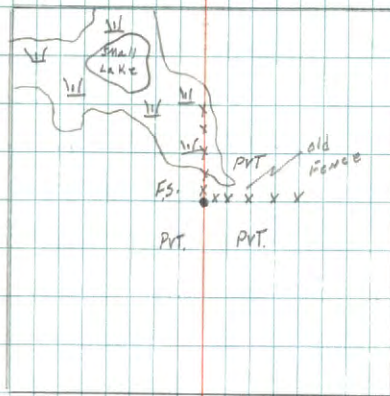 Small
Lake
PVT
old
Fence
F.S.
PVT.
PVT.